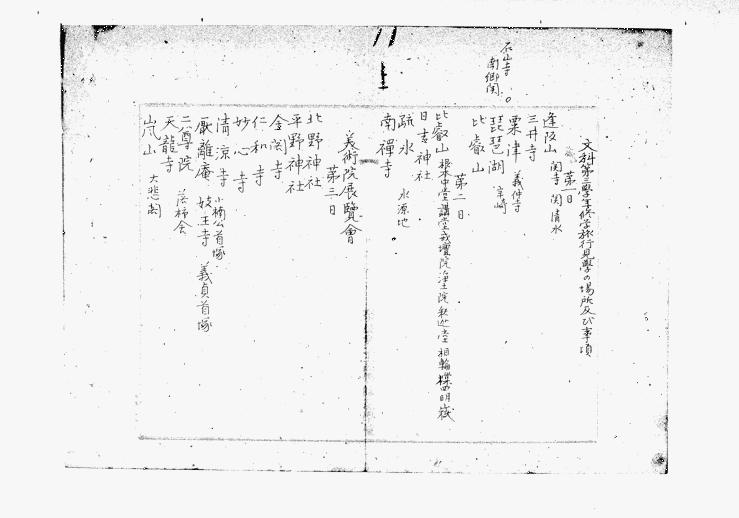 石山寺
南郷関
文科第三學年修学旅行見學の場所及び事項
第一日
逢阪山 関寺 関清水
三井寺
粟津 義仲寺
琵琶湖 辛崎
比叡山
第二日
比叡山 根本中堂 講堂 戒壇院 浄土院 釈迦堂 相輪橖 四明嶽
日吉神社
疏水 水源地
南禪寺
美術院展覽會
第三日
北野神社
平野神社
金閣寺
仁和寺
妙心寺
清涼寺 小楠公首塚
厭離庵 妓王寺 義貞首塚
二尊院 落柿舎
天龍寺
嵐山 大悲閣